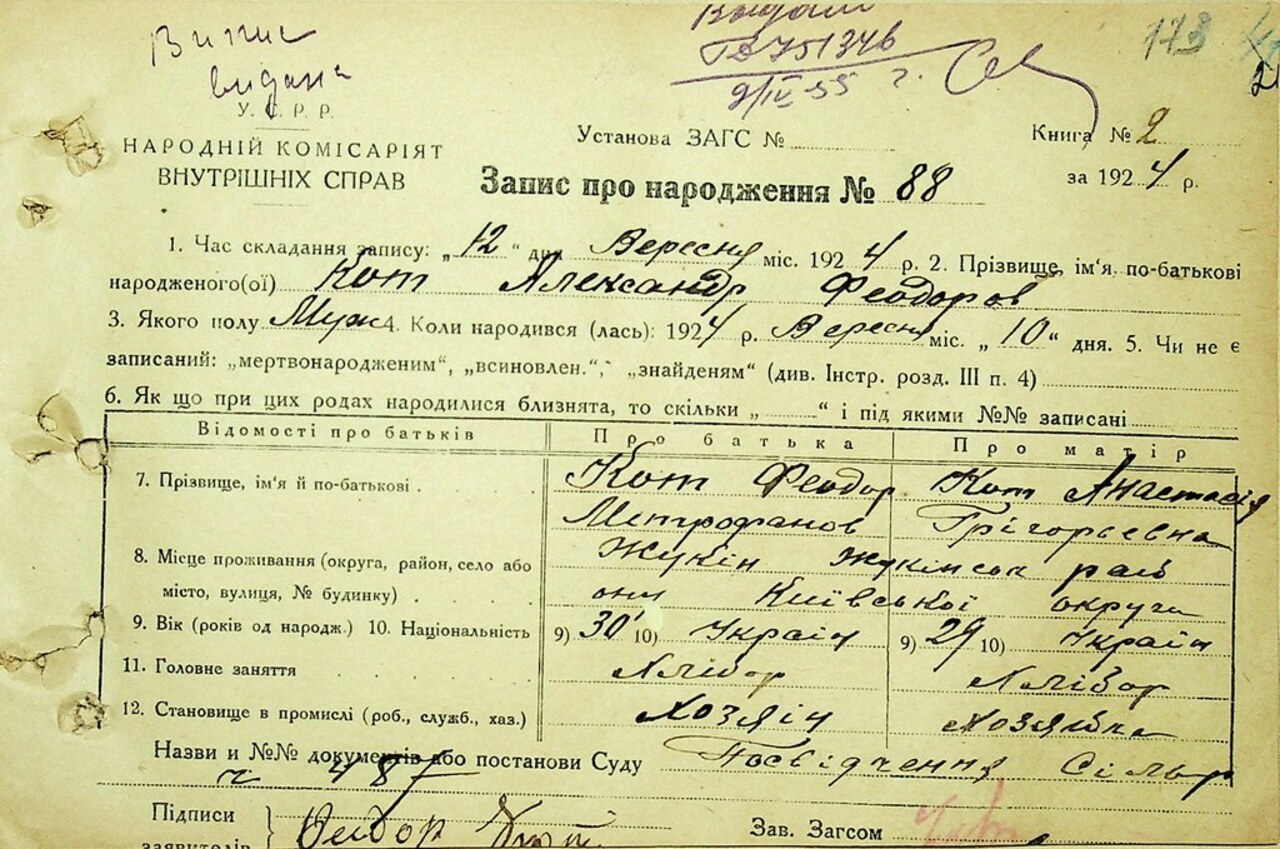 Випис
видана
У. С. Р. Р.
НАРОДНІЙ КОМІСАРІЯТ
ВНУТРІШНІХ СПРАВ
751346
9/IV-55 г.
173
Установа ЗАГС №
Книга № 2
за 1924 р.
Запис про народження № 88
1. Час складання запису: „12“ дня Вересня міс. 1924 р. 2. Прізвище, ім'я, по-батькові
народженого(ої) Кот Александр Феодоров
3. Якого полу Муж 4. Коли народився (лась): 1924 р. Вересня міс. „10“ дня. 5. Чи не є
записаний: „мертвонародженим“, „всиновлен.“, „знайденям“ (див. Інстр. розд. III п. 4)
6. Як що при цих родах народилися близнята, то скільки „ “ і під якими №№ записані
Відомості про батьків Про батька Про матір
7. Прізвище, ім'я й по-батькові Кот Феодор Кот Анастасія
Метрофанов Грігорьевна
8. Місце проживання (округа, район, село або Жукін Жукінськ рай
місто, вулиця, № будинку) они Київської округи
9. Вік (років од народж.) 10. Національність 9) 30 10) Україн 9) 29 10) Україн
11. Головне заняття Хлібор Хлібор
12. Становище в промислі (роб., служб., хаз.) Хозяін Хозяйка
Назви и №№ документів або постанови Суду Посвідчення Сільр
ч 487
Підписи
заявителів
Зав. Загсом